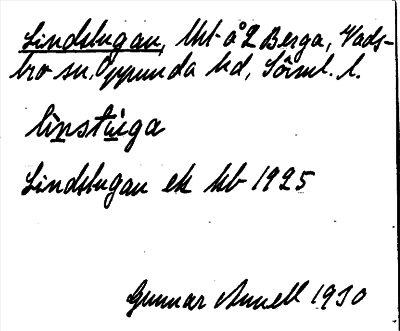 Lindstugan, lht å 2 Berga, Vads-
bro sn. Oppunda hd, Sörml. l.
li̱nstu̱ga
Lindstugan ek kb 1925
Gunnar Annell 1930